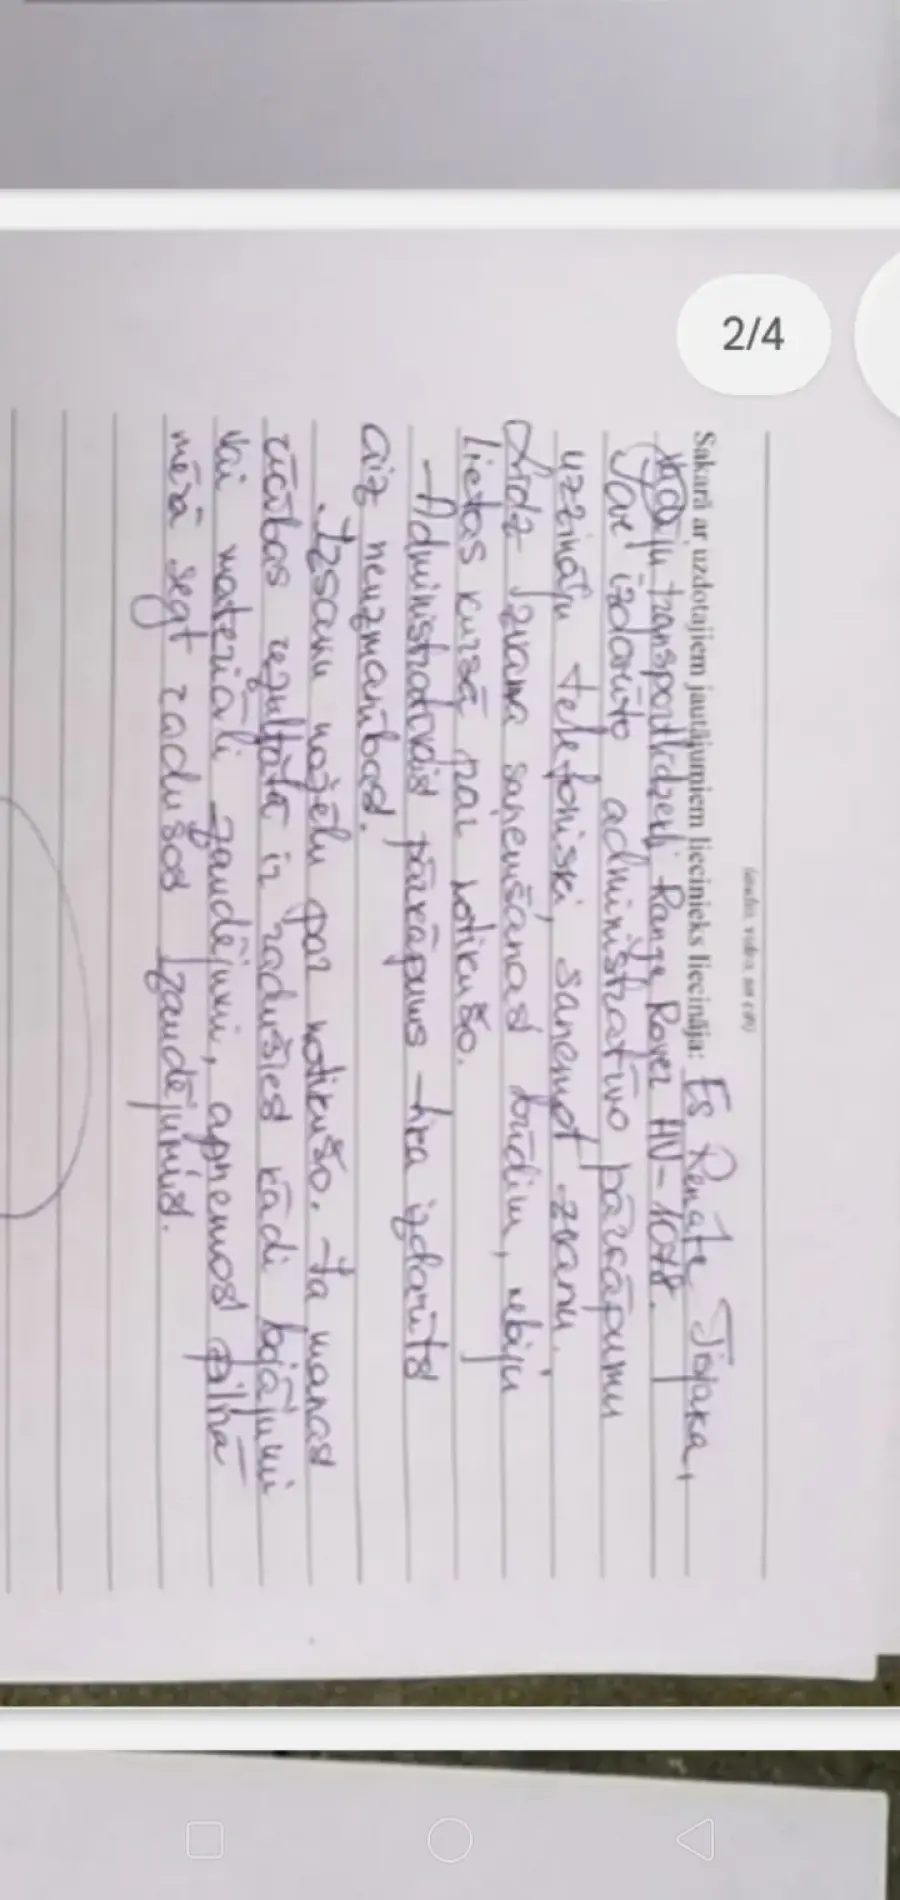 2/4
(amats, vārds, uzvārds)
Sakarā ar uzdotajiem jautājumiem liecinieks liecināja: Es Renāte Tīsjaka,
vadīju transportlīdzekli Range Rover HV-1078.
Par izdarīto administratīvo pārkāpumu
uzzināju telefoniski, saņemot zvanu.
Līdz zvana saņemšanas brīdim, nebiju
lietas kursā par notikušo.
Administratīvais pārkāpums tika izdarīts
aiz neuzmanības.
Izsaku nožēlu par notikušo. Ja manas
rīcības rezultātā ir radušies kādi bojājumi
vai materiāli zaudējumi, apņemos pilnā
mērā segt radušos zaudējumus.